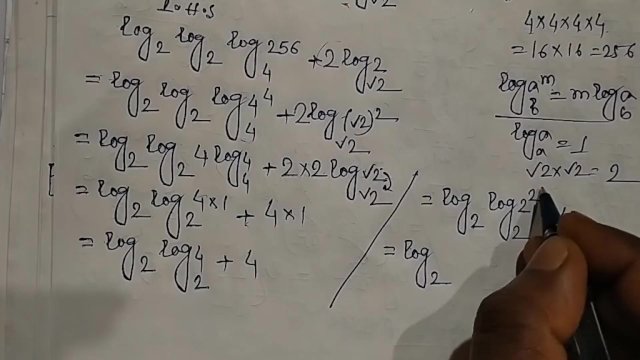 √2
log₂ log₂ log₄ 256 + 2 log_√2 2
= log₂ log₂ log₄ 4⁴ + 2 log_√2 (√2)²
= log₂ log₂ 4 log₄ 4 + 2×2 log_√2 √2
= log₂ log₂ 4×1 + 4×1
= log₂ log₂ 4 + 4
= log₂ log₂ 2²
= log₂
4×4×4×4
=16×16=256
log_b a^m = m log_b a
log_a a = 1
√2×√2=2